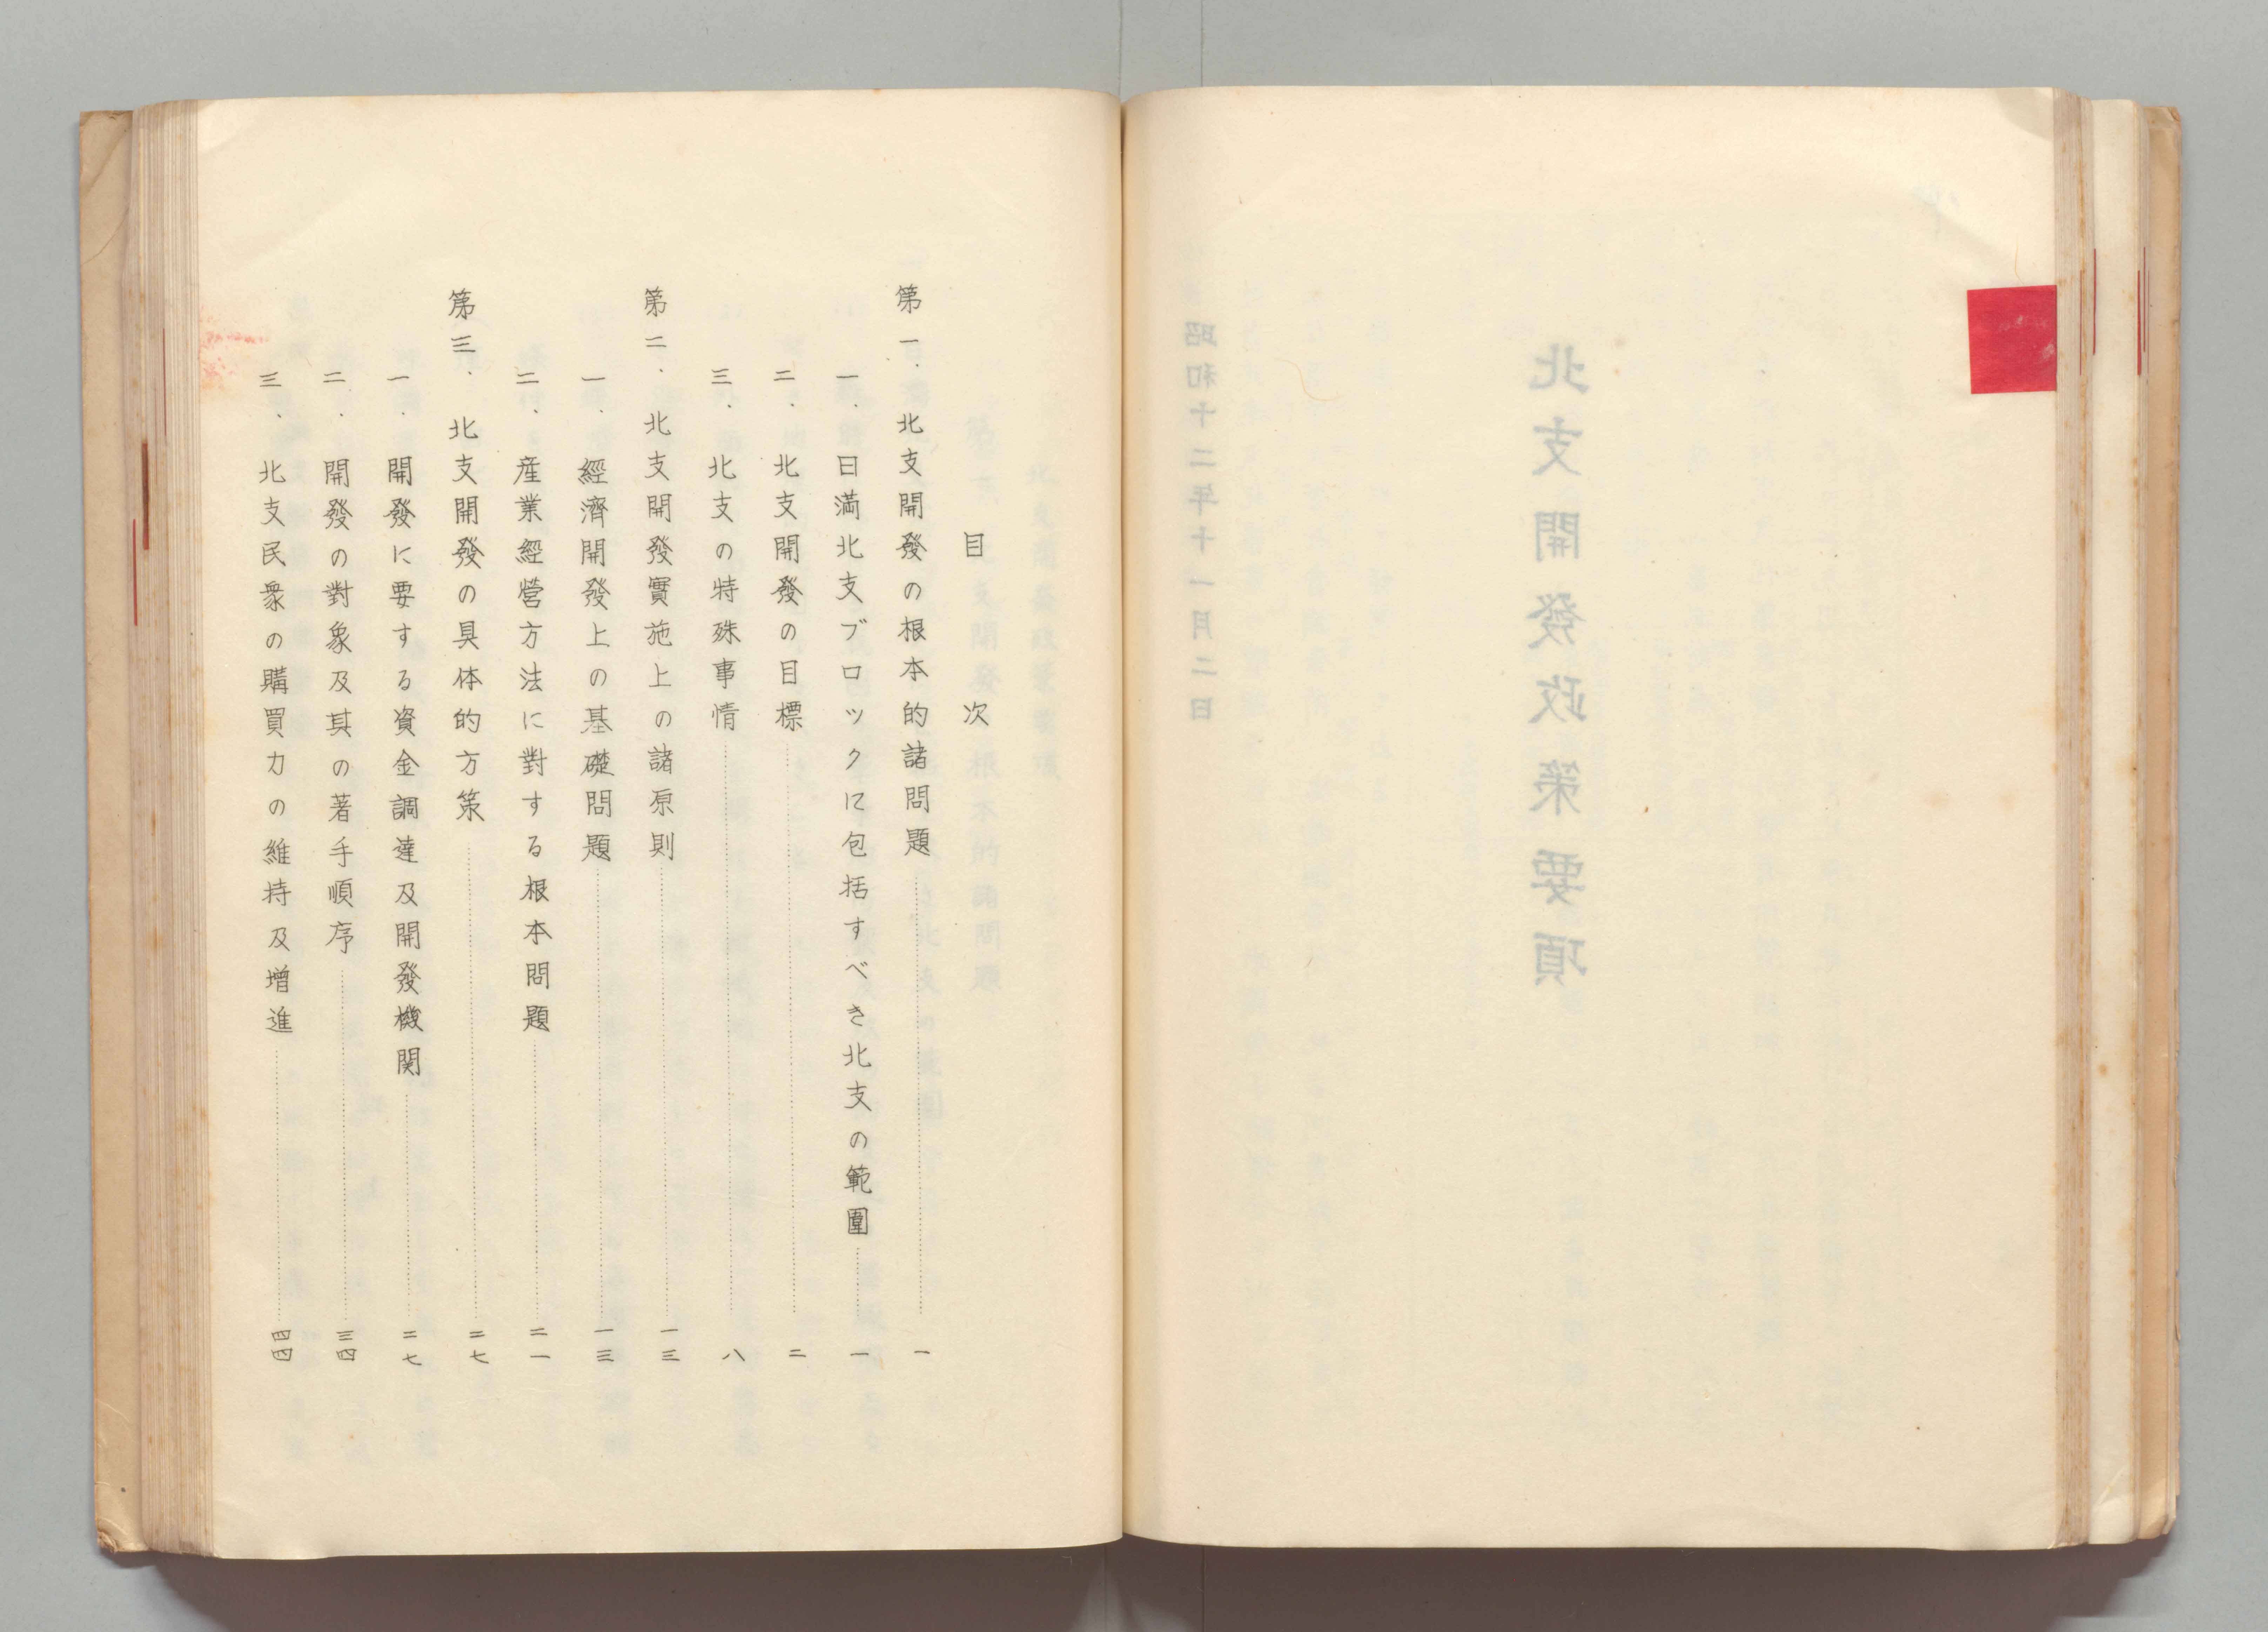 北支開發政策要項
昭和十二年十一月二日
目次
第一．北支開發の根本的諸問題……一
一．日満北支ブロックに包括すべき北支の範圍……一
二．北支開發の目標……二
三．北支の特殊事情……八
第二．北支開發實施上の諸原則……一三
一．經濟開發上の基礎問題……一三
二．産業經營方法に對する根本問題……二一
第三．北支開發の具体的方策……二七
一．開發に要する資金調達及開發機関……二七
二．開發の對象及其の著手順序……三四
三．北支民衆の購買力の維持及增進……四四